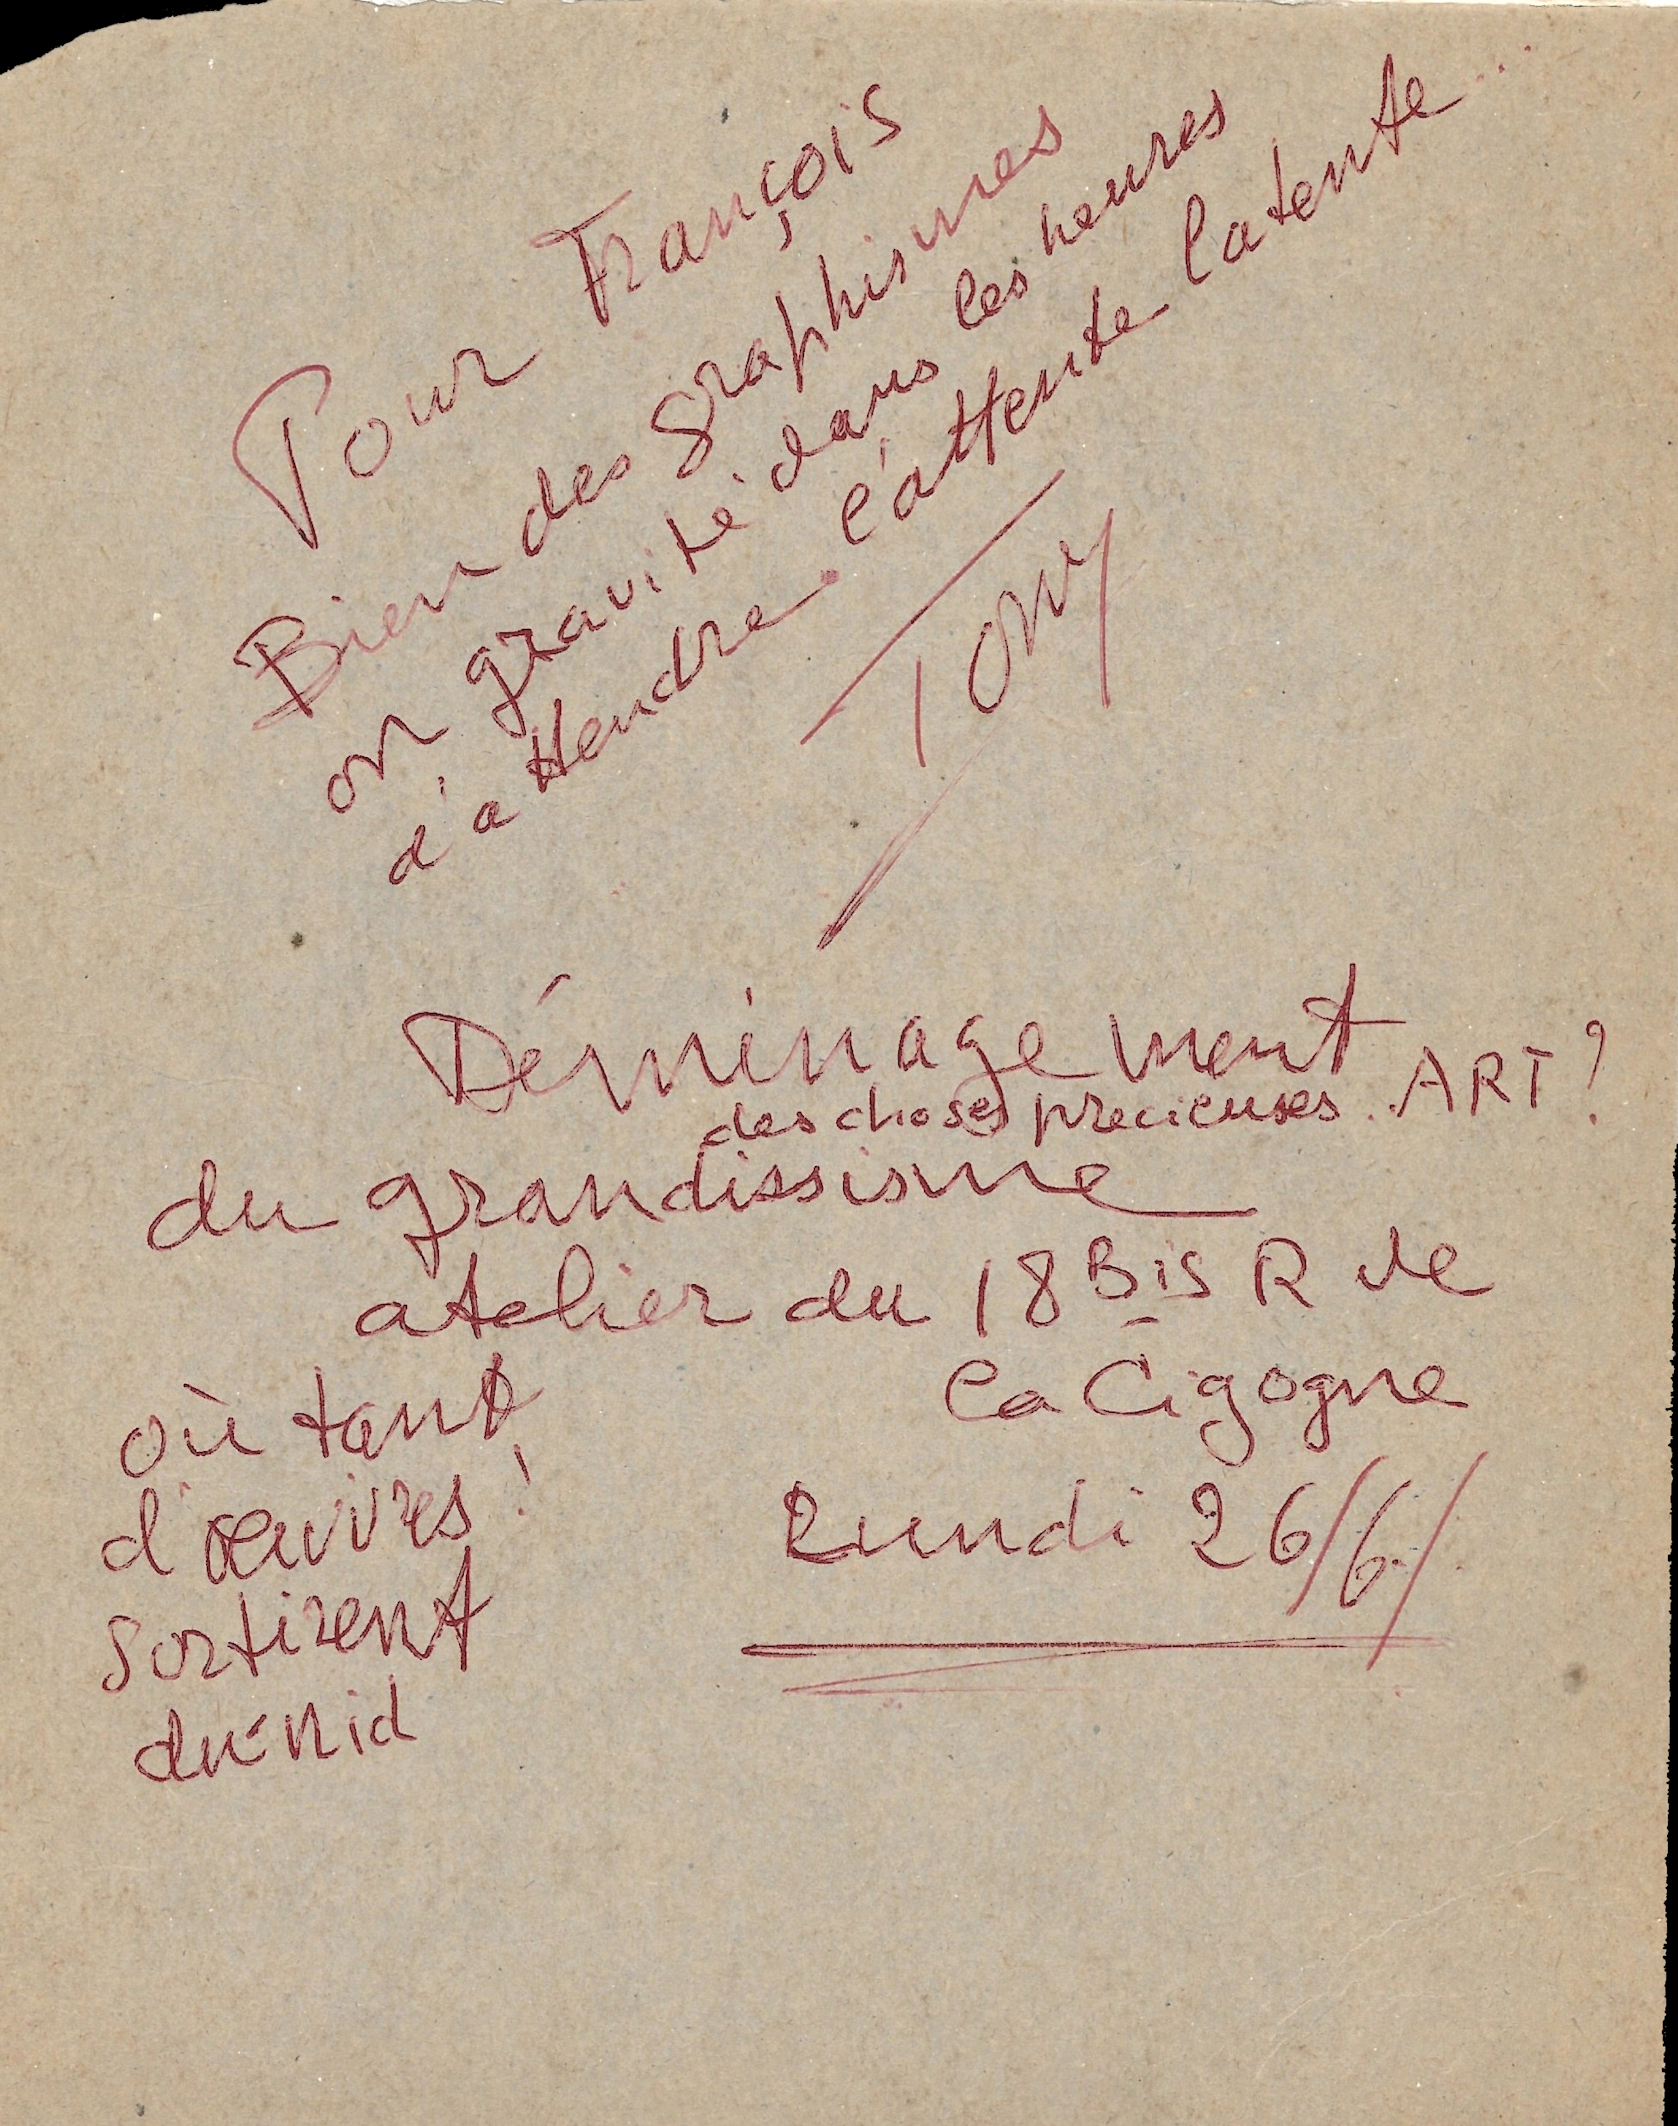 Pour François
Bien des graphismes
ont gravité dans les heures
d'attendre l'attente latente...
TONY
Déminagement
des choses precieuses. ART?
du grandissisme
atelier du 18 Bis R de
la Cigogne
où tant
d'oeuvres!
sortirent
du nid
Lundi 26/6/